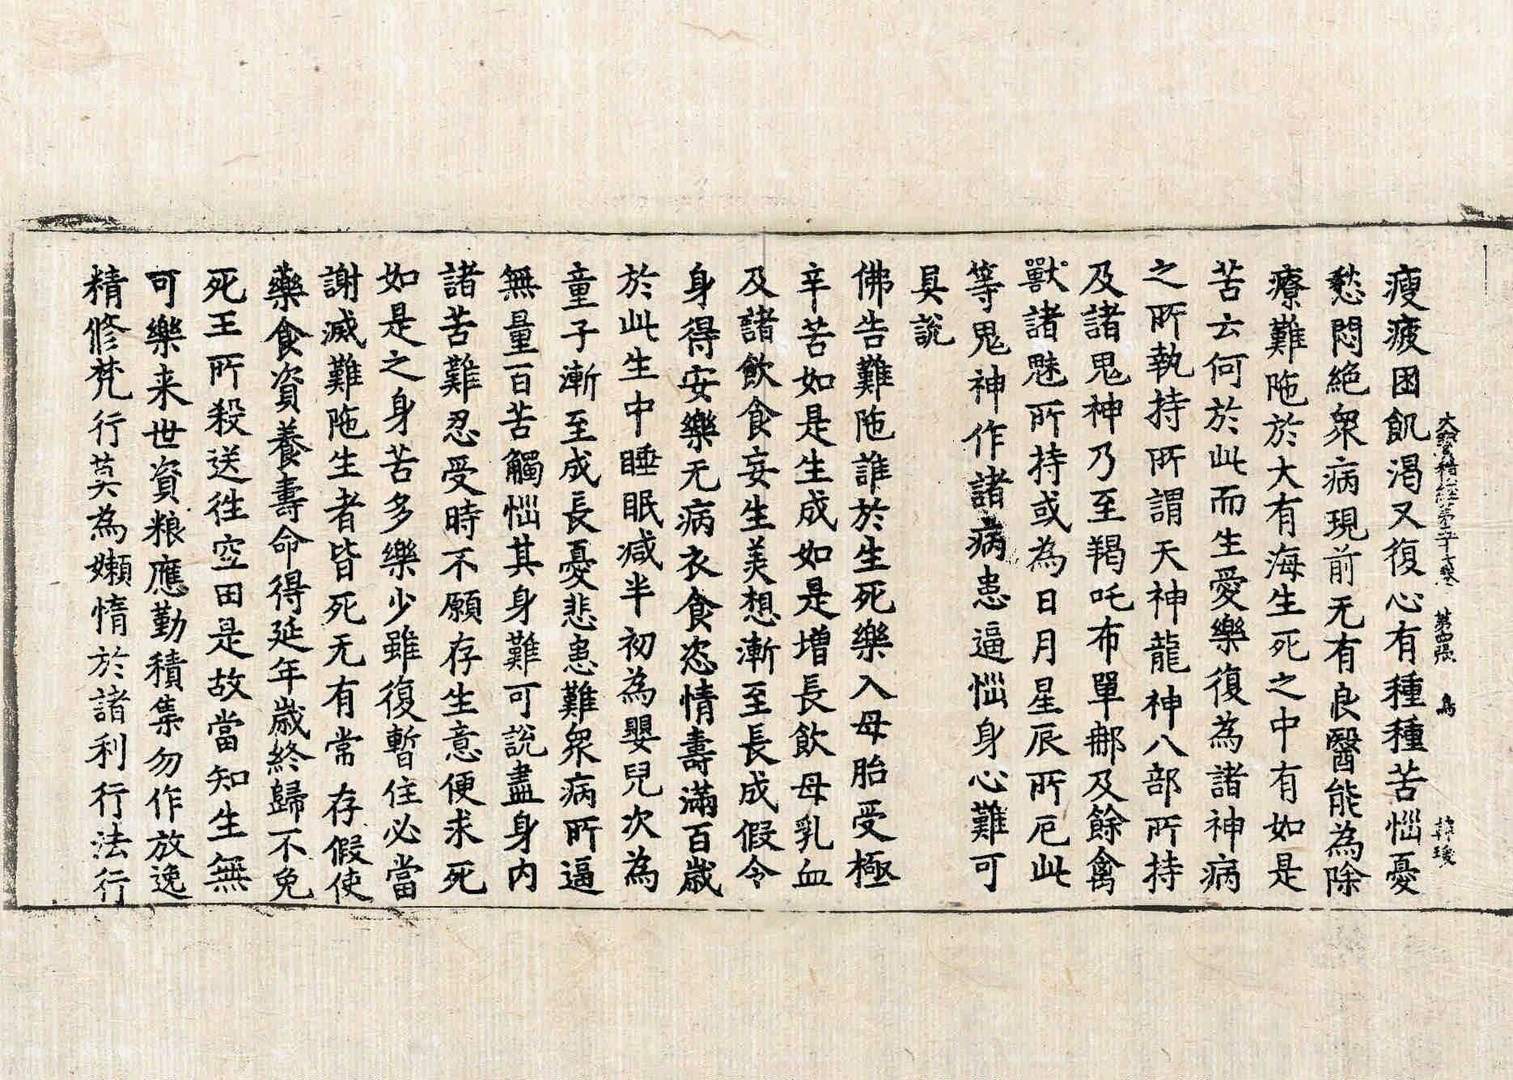 大寶積經第五十六卷 第四張 鳥 韓瑗
瘦疲困飢渴又復心有種種苦惱憂
愁悶絕衆病現前无有良醫能為除
療難陁於大有海生死之中有如是
苦云何於此而生愛樂復為諸神病
之所執持所謂天神龍神八部所持
及諸鬼神乃至羯吒布單那及餘禽
獸諸魅所持或為日月星辰所厄此
等鬼神作諸病患逼惱身心難可
具說
佛告難陁誰於生死樂入母胎受極
辛苦如是生成如是增長飲母乳血
及諸飲食妄生美想漸至長成假令
身得安樂无病衣食恣情壽滿百歲
於此生中睡眠減半初為嬰兒次為
童子漸至成長憂悲患難衆病所逼
無量百苦觸惱其身難可說盡身內
諸苦難忍受時不願存生意便求死
如是之身苦多樂少雖復暫住必當
謝滅難陁生者皆死无有常存假使
藥食資養壽命得延年歲終歸不免
死王所殺送往空田是故當知生無
可樂来世資粮應勤積集勿作放逸
精修梵行莫為嬾惰於諸利行法行